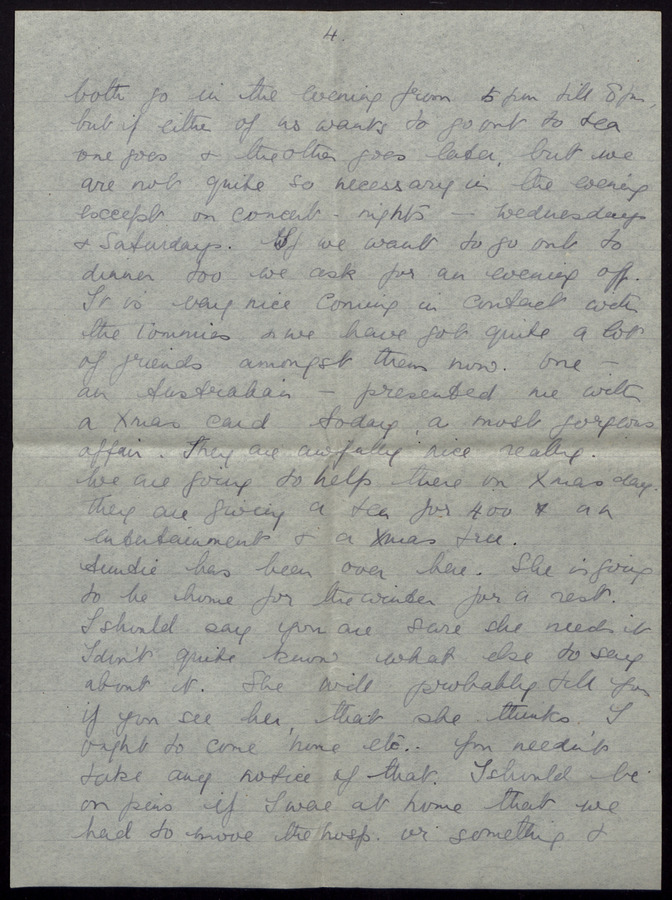 4.
both go in the evening from 5 pm till 8 pm,
but if either of us wants to go out to tea
one goes & the other goes later, but we
are not quite so necessary in the evening
except on concert - nights — Wednesdays
& Saturdays. If we want to go out to
dinner too we ask for an evening off.
It is very nice coming in contact with
the Tommies & we have got quite a lot
of friends amongst them now. One —
an Australian — presented me with
a Xmas card today, a most gorgeous
affair. They are awfully nice really.
We are going to help there on Xmas day.
they are giving a tea for 400 & an
entertainment & a Xmas tree.
Auntie has been over here. She is going
to be home for the winter for a rest.
I should say you are sure she needs it
I don't quite know what else to say
about it. She will probably tell you
if you see her, that she thinks I
ought to come home etc.. You needn't
take any notice of that. I should be
on pins if I were at home that we
had to move the hosp. or something &